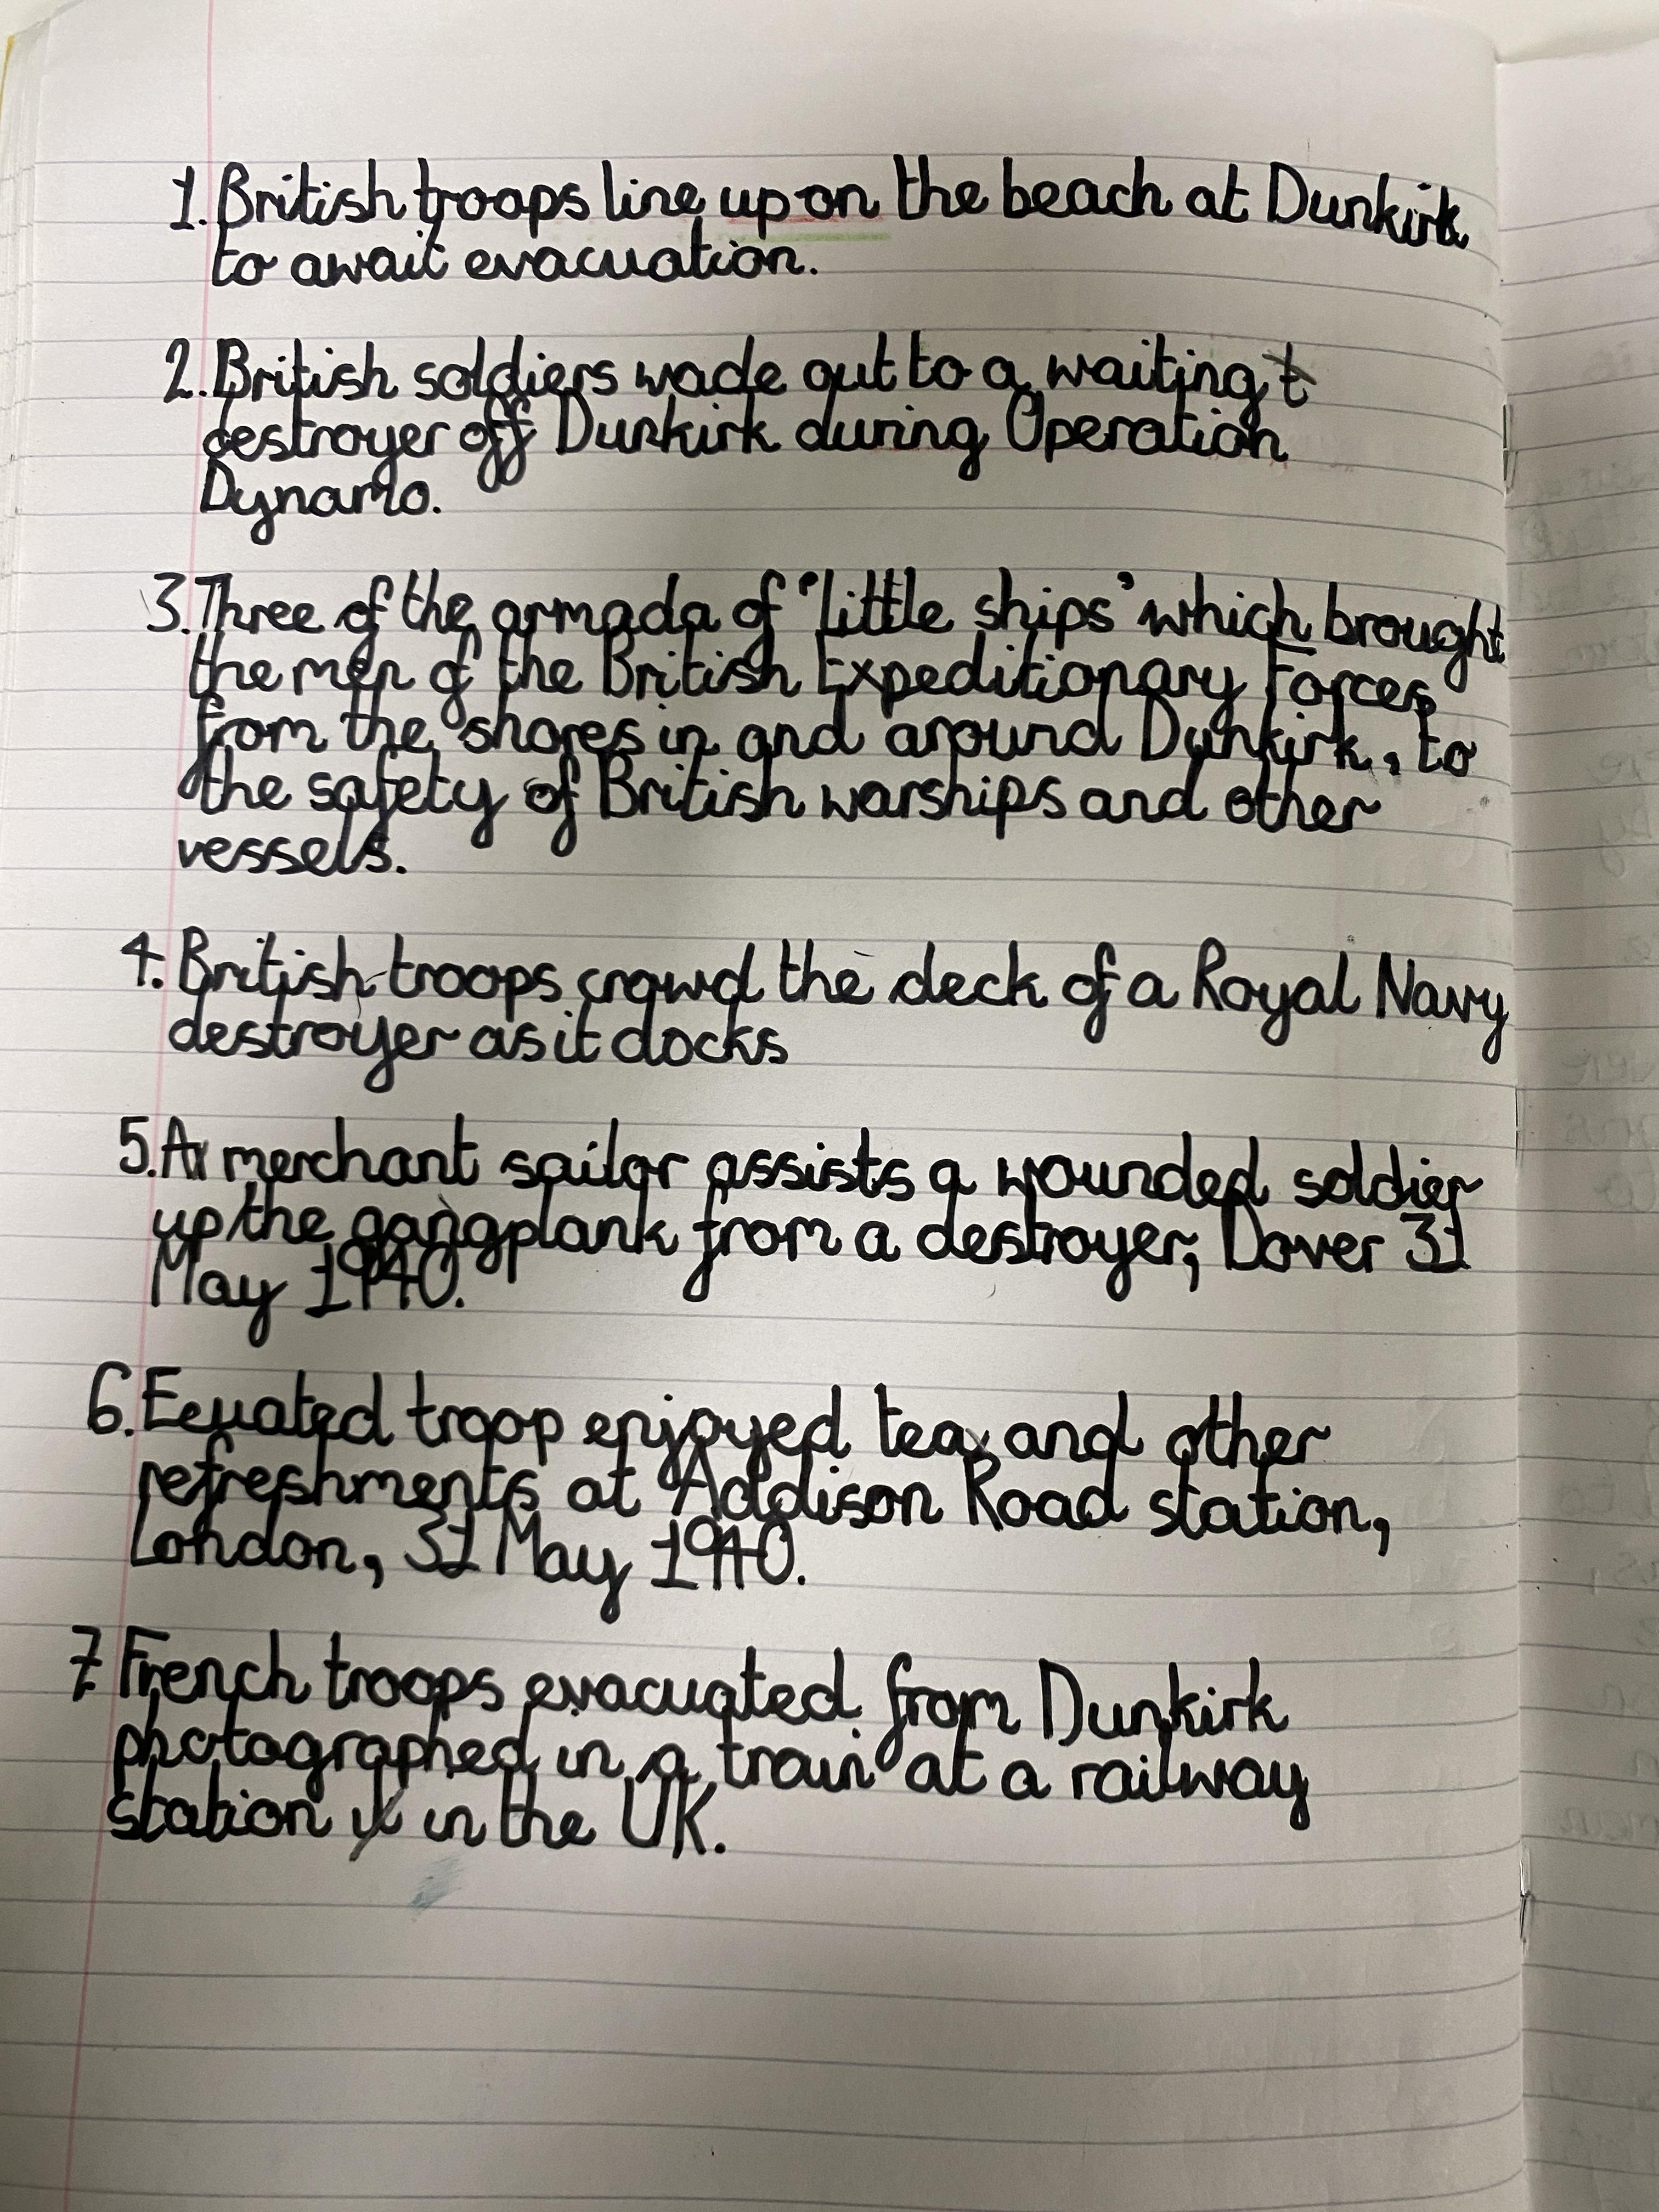 1. British troops line up on the beach at Dunkirk
to await evacuation.
2. British soldiers wade out to a waiting
destroyer off Dunkirk during Operation
Dynamo.
3. Three of the armada of 'little ships' which brought
the men of the British Expeditionary Forces
from the shores in and around Dunkirk, to
the safety of British warships and other
vessels.
4. British troops crowd the deck of a Royal Navy
destroyer as it docks
5. A merchant sailor assists a wounded soldier
up the gangplank from a destroyer, Dover 31
May 1940.
6. Eeuated troop enjoyed tea and other
refreshments at Addison Road station,
London, 31 May 1940.
7 French troops evacuated from Dunkirk
photographed in a train at a railway
station in the UK.